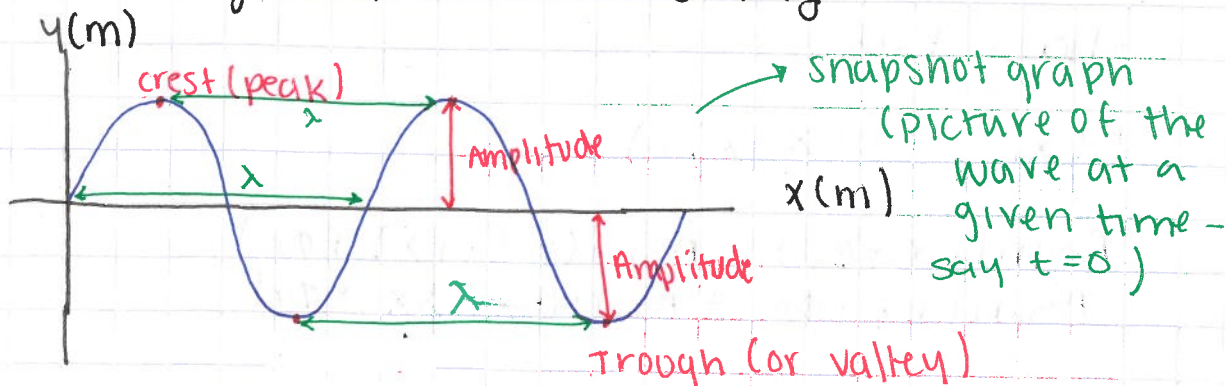 y(m)
crest (peak)
λ
Amplitude
λ
x(m)
Amplitude
λ
Trough (or valley)
snapshot graph
(picture of the
wave at a
given time -
say t=0)